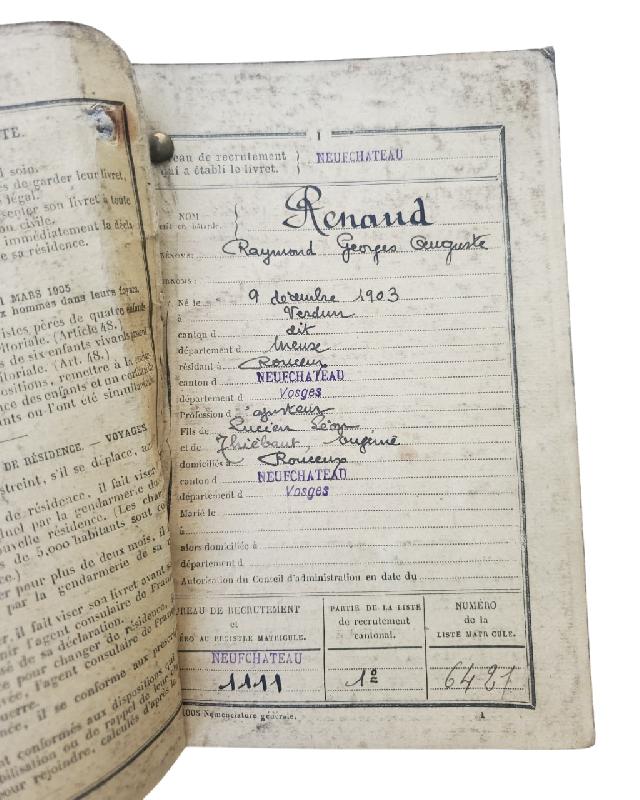 TE.
soin.
de garder leur livret,
légal.
son livret à toute
civile.
immédiatement la décla
sa résidence.
MARS 1905
hommes dans leurs foyers.
pères de quatre enfants
(Article 48.)
de six enfants vivants
(Art. 48.)
remettre à la
des enfants et un
ou l'ont été
DE RÉSIDENCE. VOYAGES.
s'il se déplace,
de résidence, il fait viser
par la gendarmerie de
nouvelle résidence. (Les
de 5,000 habitants sont
pour plus de deux mois, il
par la gendarmerie de sa
il fait viser son livret avant
l'agent consulaire de
de sa déclaration.
pour changer de résidence,
l'agent consulaire de
il se conforme aux
conformés aux dispositions qui
ou de rappel de leur
pour rejoindre, calculés d'après la
1
eau de recrutement
qui a établi le livret.
NEUFCHATEAU
NOM
Renaud
Raymond Georges Auguste
Né le 9 décembre 1903
à Verdun
canton d dit
département d Meuse
résidant à Rouceux
canton d NEUFCHATEAU
département d Vosges
Profession d'ajusteur
Fils de Lucien Léon
et de Thiébaut, Eugénie
domiciliés à Rouceux
canton d NEUFCHATEAU
département d Vosges
Marié le
à
alors domiciliée à
département d
Autorisation du Conseil d'administration en date du
UREAU DE RECRUTEMENT
et
RO AU REGISTRE MATRICULE.
PARTIE DE LA LISTE
de recrutement
cantonal.
NUMÉRO
de la
LISTE MATRICULE.
NEUFCHATEAU
1111
1º
1005 Nomenclature générale.
1